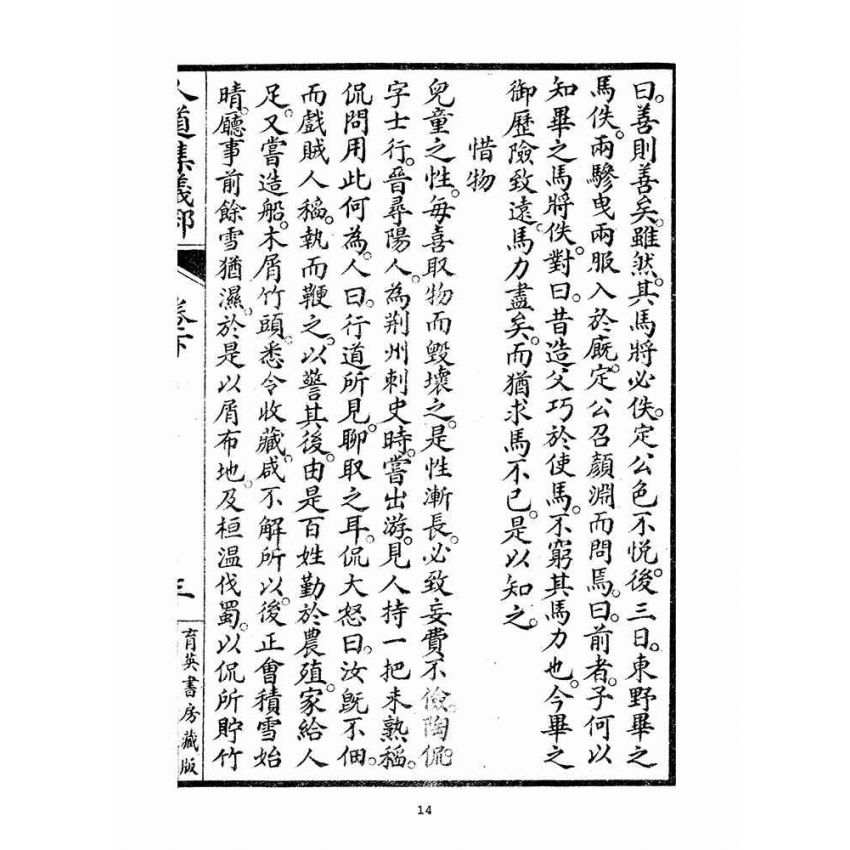 曰。善則善矣。雖然。其馬將必佚。定公色不悅。後三日。東野畢之
馬佚。兩驂曳兩服入於廐。定公召顏淵而問焉。曰。前者。子何以
知畢之馬將佚。對曰。昔造父巧於使馬。不窮其馬力也。今畢之
御。歷險致遠。馬力盡矣。而猶求馬不已。是以知之。
惜物
兒童之性。每喜取物而毀壞之。是性漸長。必致妄費不儉。陶侃。
字士行。晉尋陽人。為荆州刺史時。嘗出游。見人持一把未熟稻。
侃問用此何為。人曰。行道所見。聊取之耳。侃大怒曰。汝既不佃。
而戲賊人稻。執而鞭之。以警其後。由是百姓勤於農殖。家給人
足。又嘗造船。木屑竹頭。悉令收藏。咸不解所以。後正會積雪始
晴。廳事前餘雪猶濕。於是以屑布地。及桓温伐蜀。以侃所貯竹
人道集義郛
卷下
三
育英書房藏版
14